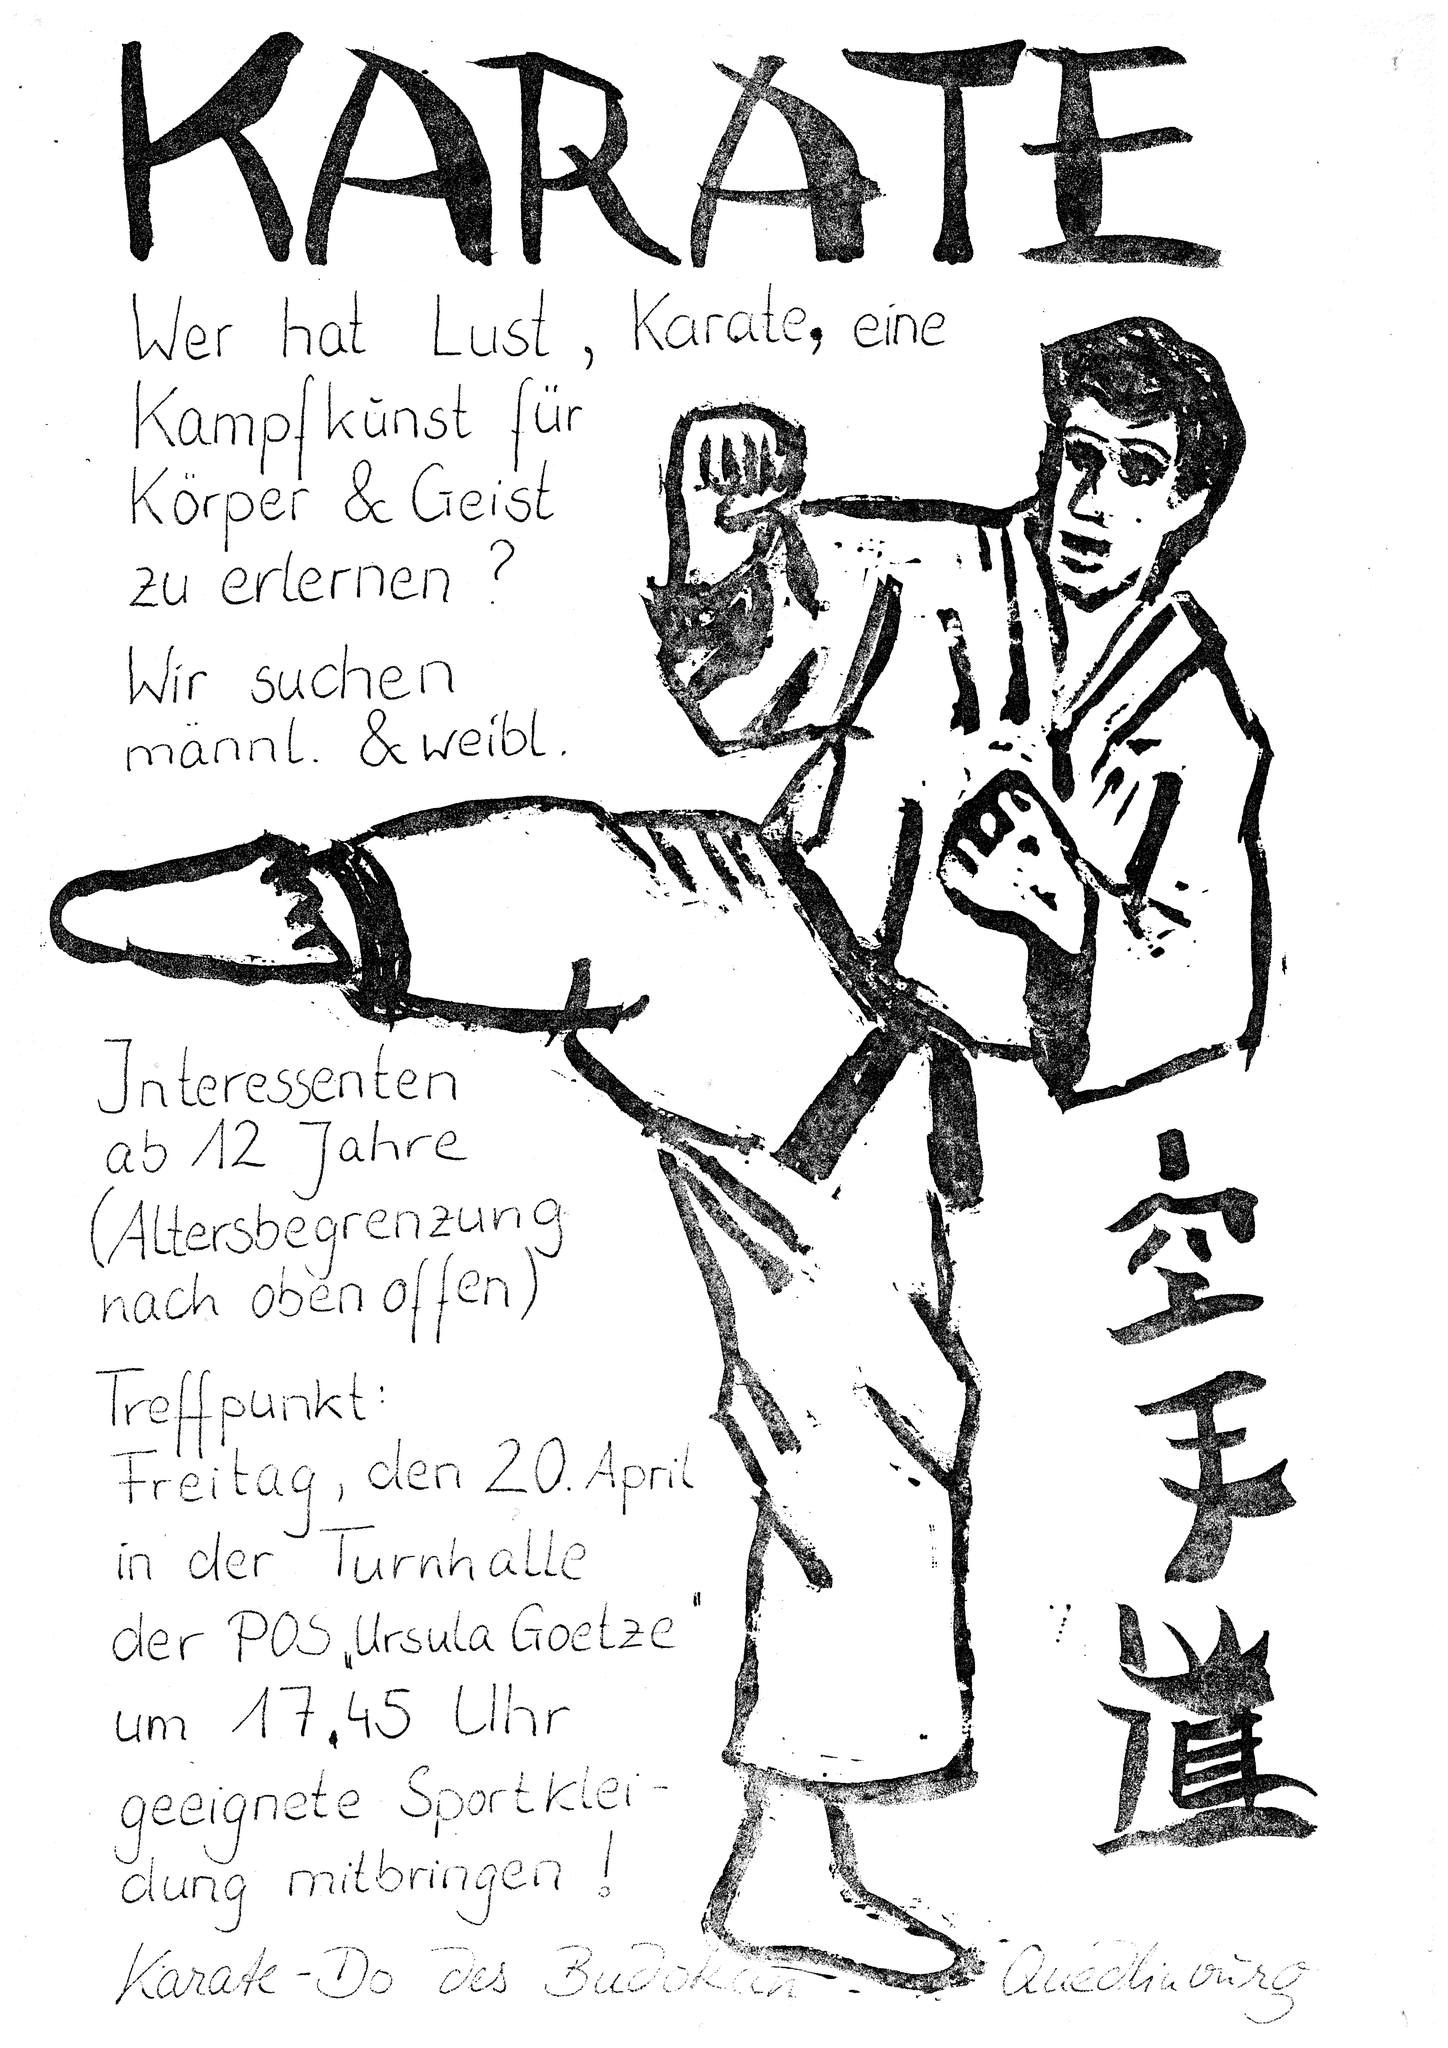 KARATE
Wer hat Lust, Karate, eine
Kampfkunst für
Körper & Geist
zu erlernen?
Wir suchen
männl. & weibl.
Interessenten
ab 12 Jahre
(Altersbegrenzung
nach oben offen)
Treffpunkt:
Freitag, den 20. April
in der Turnhalle
der POS „Ursula Goetze"
um 17.45 Uhr
geeignete Sportklei-
dung mitbringen!
空
手
道
Karate-Do des Budokan Quedlinburg